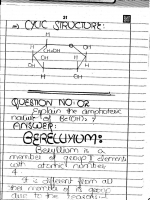 21
⇒ CYCLIC STRUCTURE:
H
CH₂OH
OH
H
H
H
H
QUESTION NO: 02
Explain the amphoteric
nature of Be(OH)₂ ?
ANSWER:
BERELLYIUM:
Beryllium is a
member of group II elements
with atomic number
4.
It is different from all
other members of its group
due to the reasons